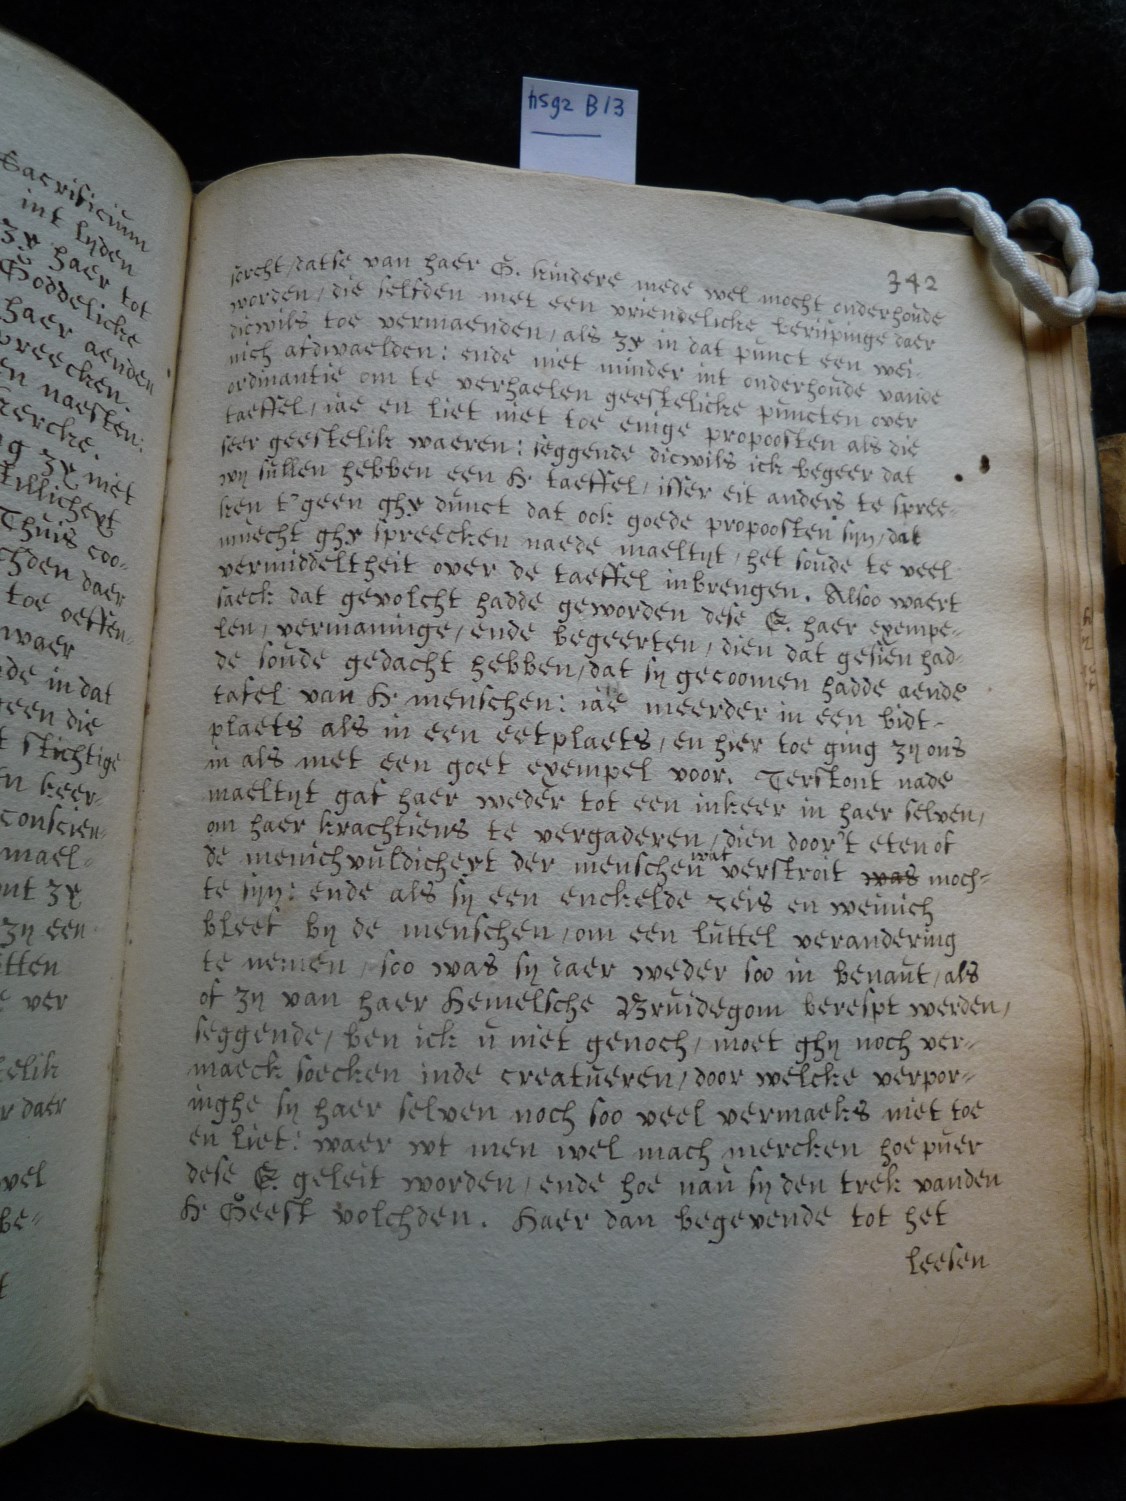 hsgz B13
Sacrificium
int lyden
zy haer tot
Goddelicke
haer aenden
preecken.
en naesten:
kercke.
ng zy niet
stillicheyt
Thuis coo-
chden daer
toe oeffen-
waer
nde in dat
geen die
t stichtige
en keer-
conscien-
mael-
ont zy
zy een
etten
e ver
telik
er daer
wel
be-
342
sorcht, datse van haer G. kindere mede wel mocht onderhoude
worden, die selfden met een vriendelicke berijpinge daer
dicwils toe vermaenden, als zy in dat punct een wei-
nich afdwaelden: ende niet minder int onderhoude vande
ordinantie om te verhaelen geestelicke puncten over
taeffel, iae en liet niet toe enige propoosten als die
seer geestelik waeren: seggende dicwils ick begeer dat
wy sullen hebben een H. taeffel, isser eit anders te spree-
ken t'geen ghy dunct dat ook goede propoosten syn, dat
muecht ghy spreecken naede maeltyt, het soude te veel
vermiddeltheit over de taeffel inbrengen. Alsoo waert
saeck dat gevolcht hadde geworden dese E. haer exempe-
len, vermaninge, ende begeerten, dien dat gesien had-
de soude gedacht hebben, dat sy gecoomen hadde aende
tafel van H. menschen: iae meerder in een bidt-
plaets als in een eetplaets, en hier toe ging zy ons
in als met een goet exempel voor. Terstont nade
maeltyt gaf haer weder tot een inkeer in haer selven,
om haer krachtiens te vergaderen, dien door't eten of
de menichvuldicheyt der menschen wat verstroit was moch-
te syn: ende als sy een enckelde reis en weinich
bleef by de menschen, om een luttel verandering
te nemen, soo was sy daer weder soo in benaut, als
of zy van haer Hemelsche Bruidegom berespt werden,
seggende, ben ick u niet genoch, moet ghy noch ver-
maeck soecken inde creatueren, door welcke verpor-
inghe sy haer selven noch soo veel vermaeks niet toe
en liet: waer wt men wel mach mercken hoe puer
dese E. geleit worden, ende hoe nau sy den trek vanden
H. Geest volchden. Haer dan begevende tot het
leesen